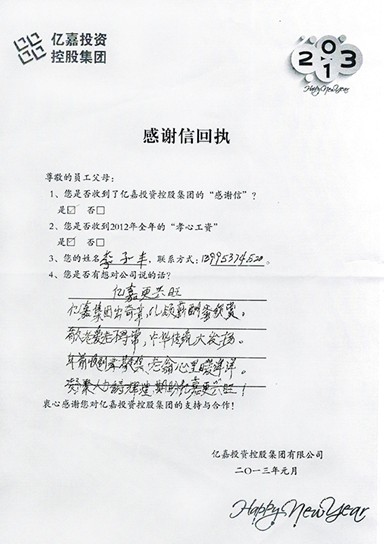 亿嘉投资
控股集团
2013
Happy New Year
感谢信回执
尊敬的员工父母：
1、您是否收到了亿嘉投资控股集团的“感谢信”？
是☑ 否☐
2、您是否收到2012年全年的“孝心工资”
是☑ 否☐
3、您的姓名李子丰，联系方式：13995374520。
4、您是否有想对公司说的话？
亿嘉更兴旺
亿嘉集团出奇葩，
敬老爱老 常，中华传统大发扬。
老翁心里暖洋洋。
期盼亿嘉更兴旺！
衷心感谢您对亿嘉投资控股集团的支持与合作！
亿嘉投资控股集团有限公司
二〇一三年元月
Happy New Year